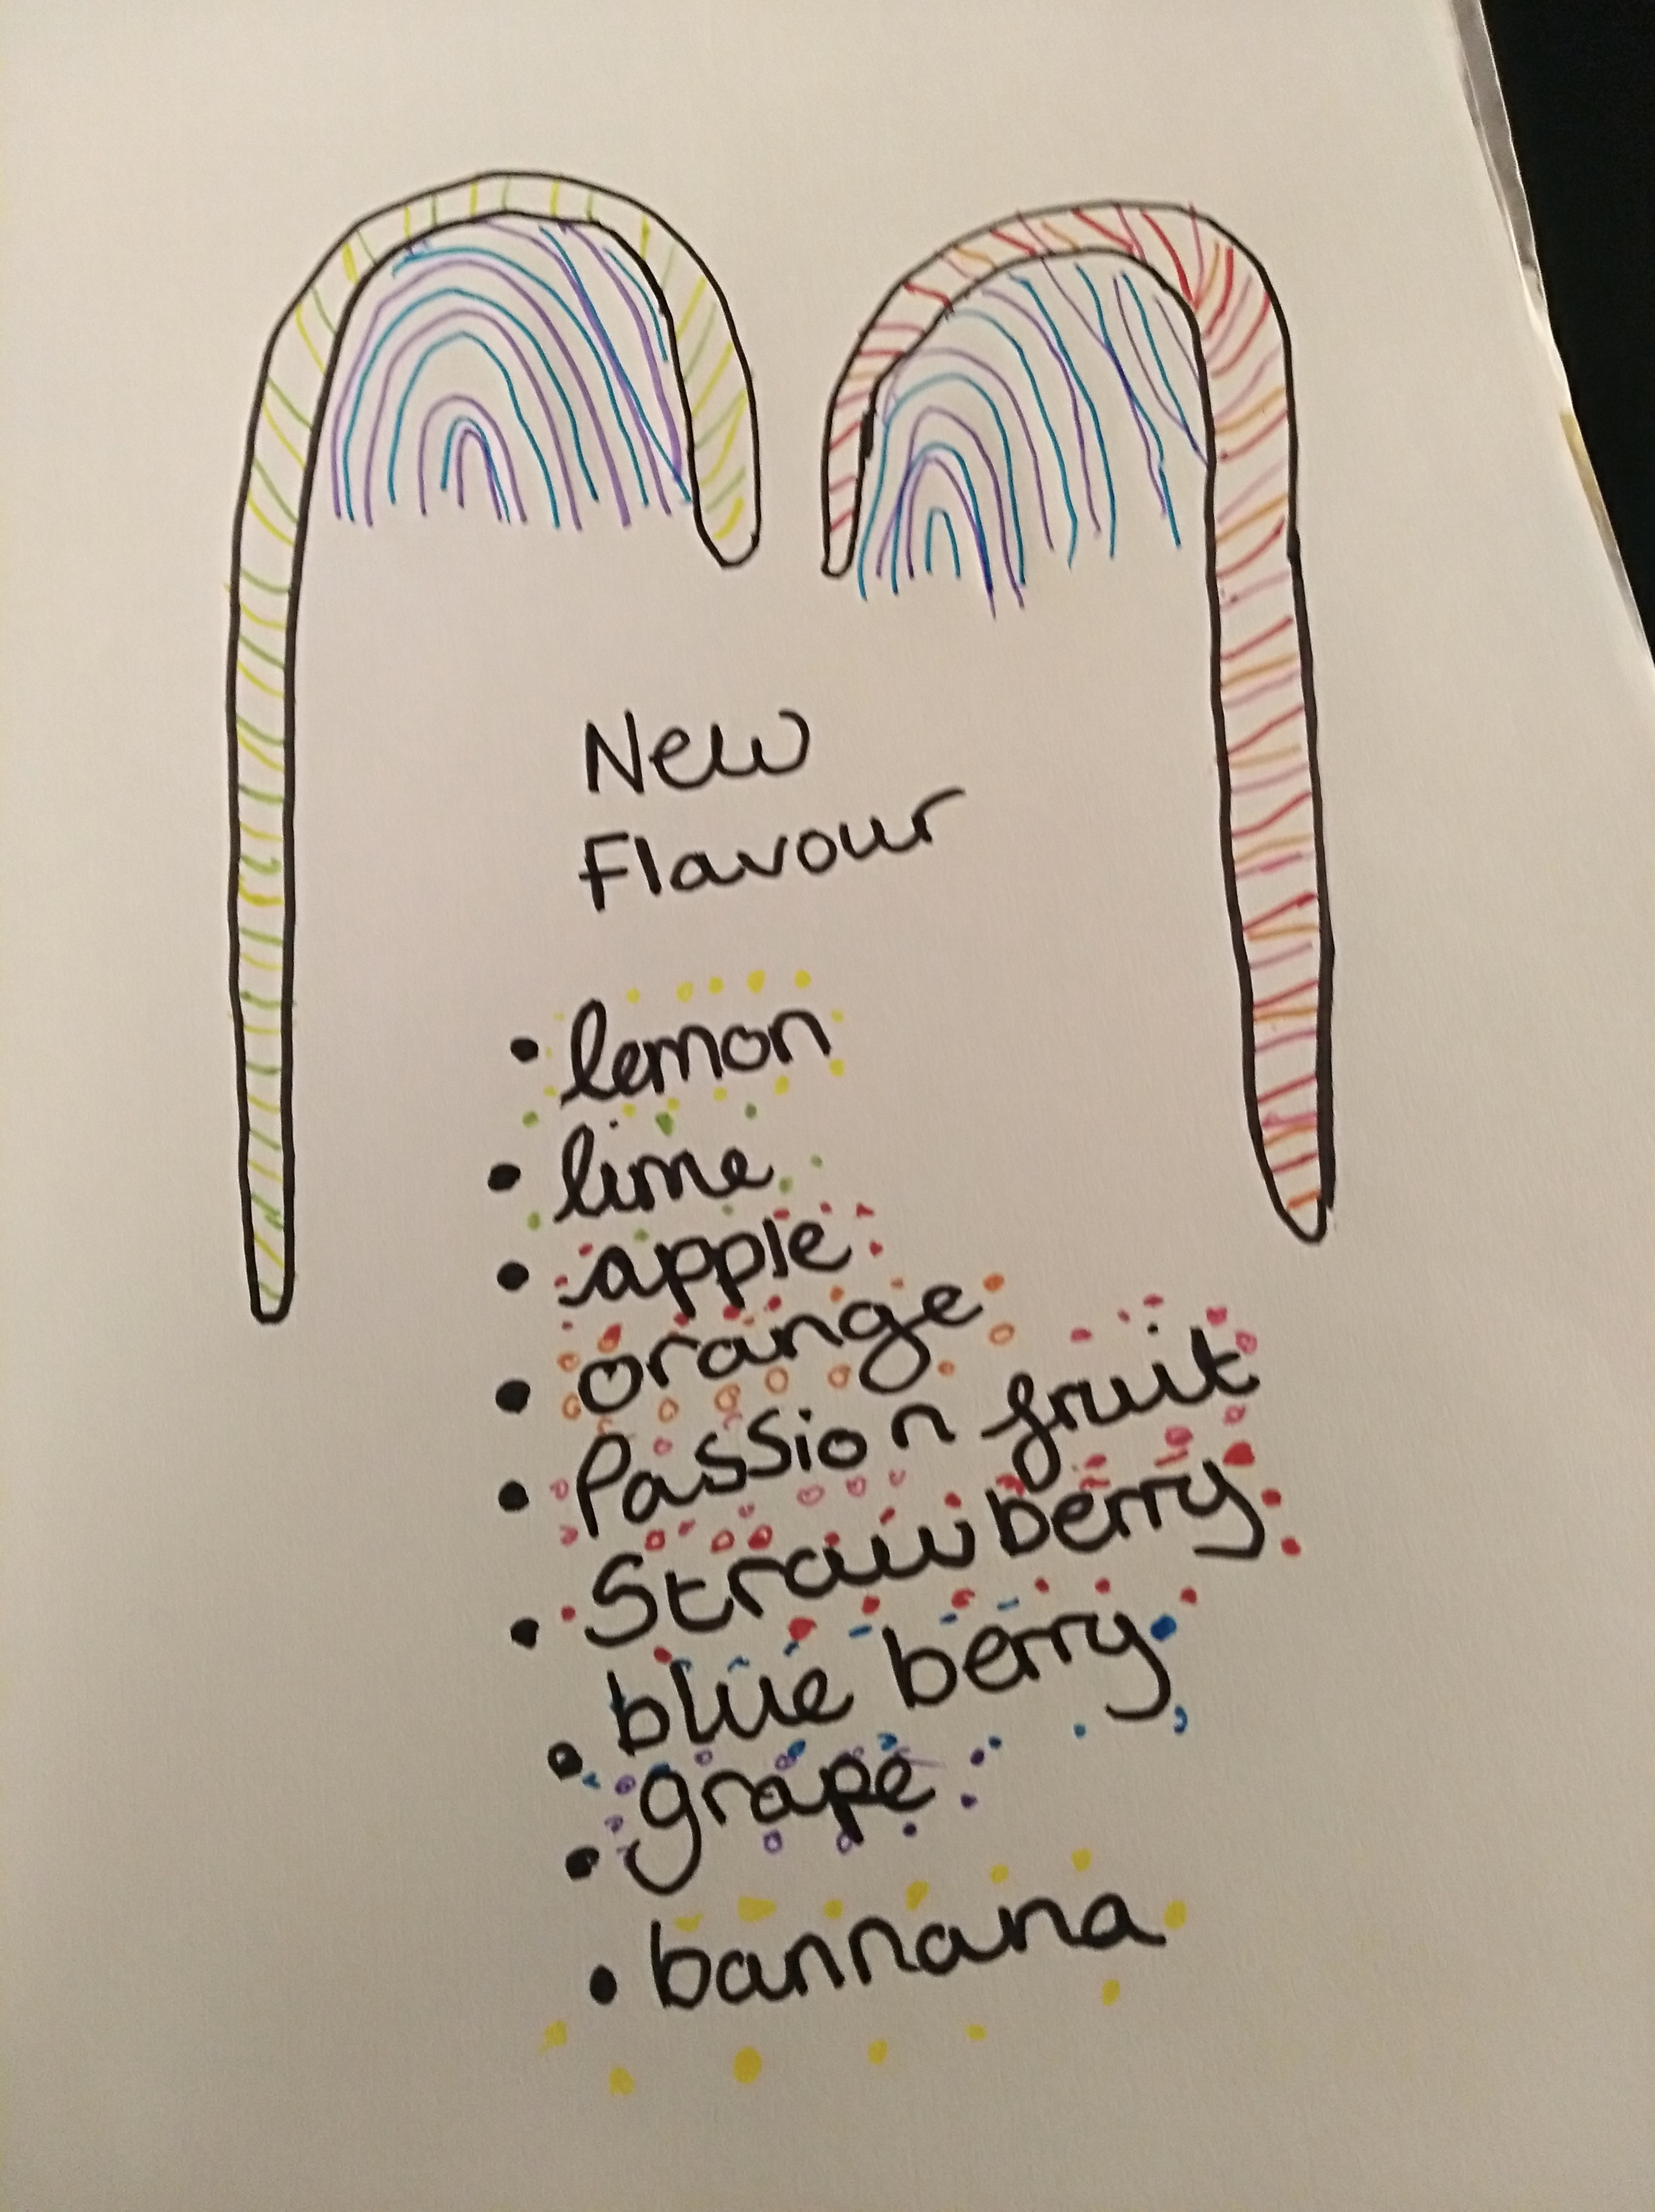 New
Flavour
• lemon
• lime
• apple
• orange
• Passion fruit
• Strawberry
• blue berry
• grape
• bannana